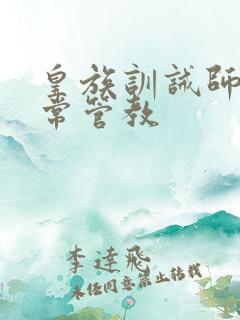 皇族訓誡師
常管教
李達飛
未经同意禁止转载